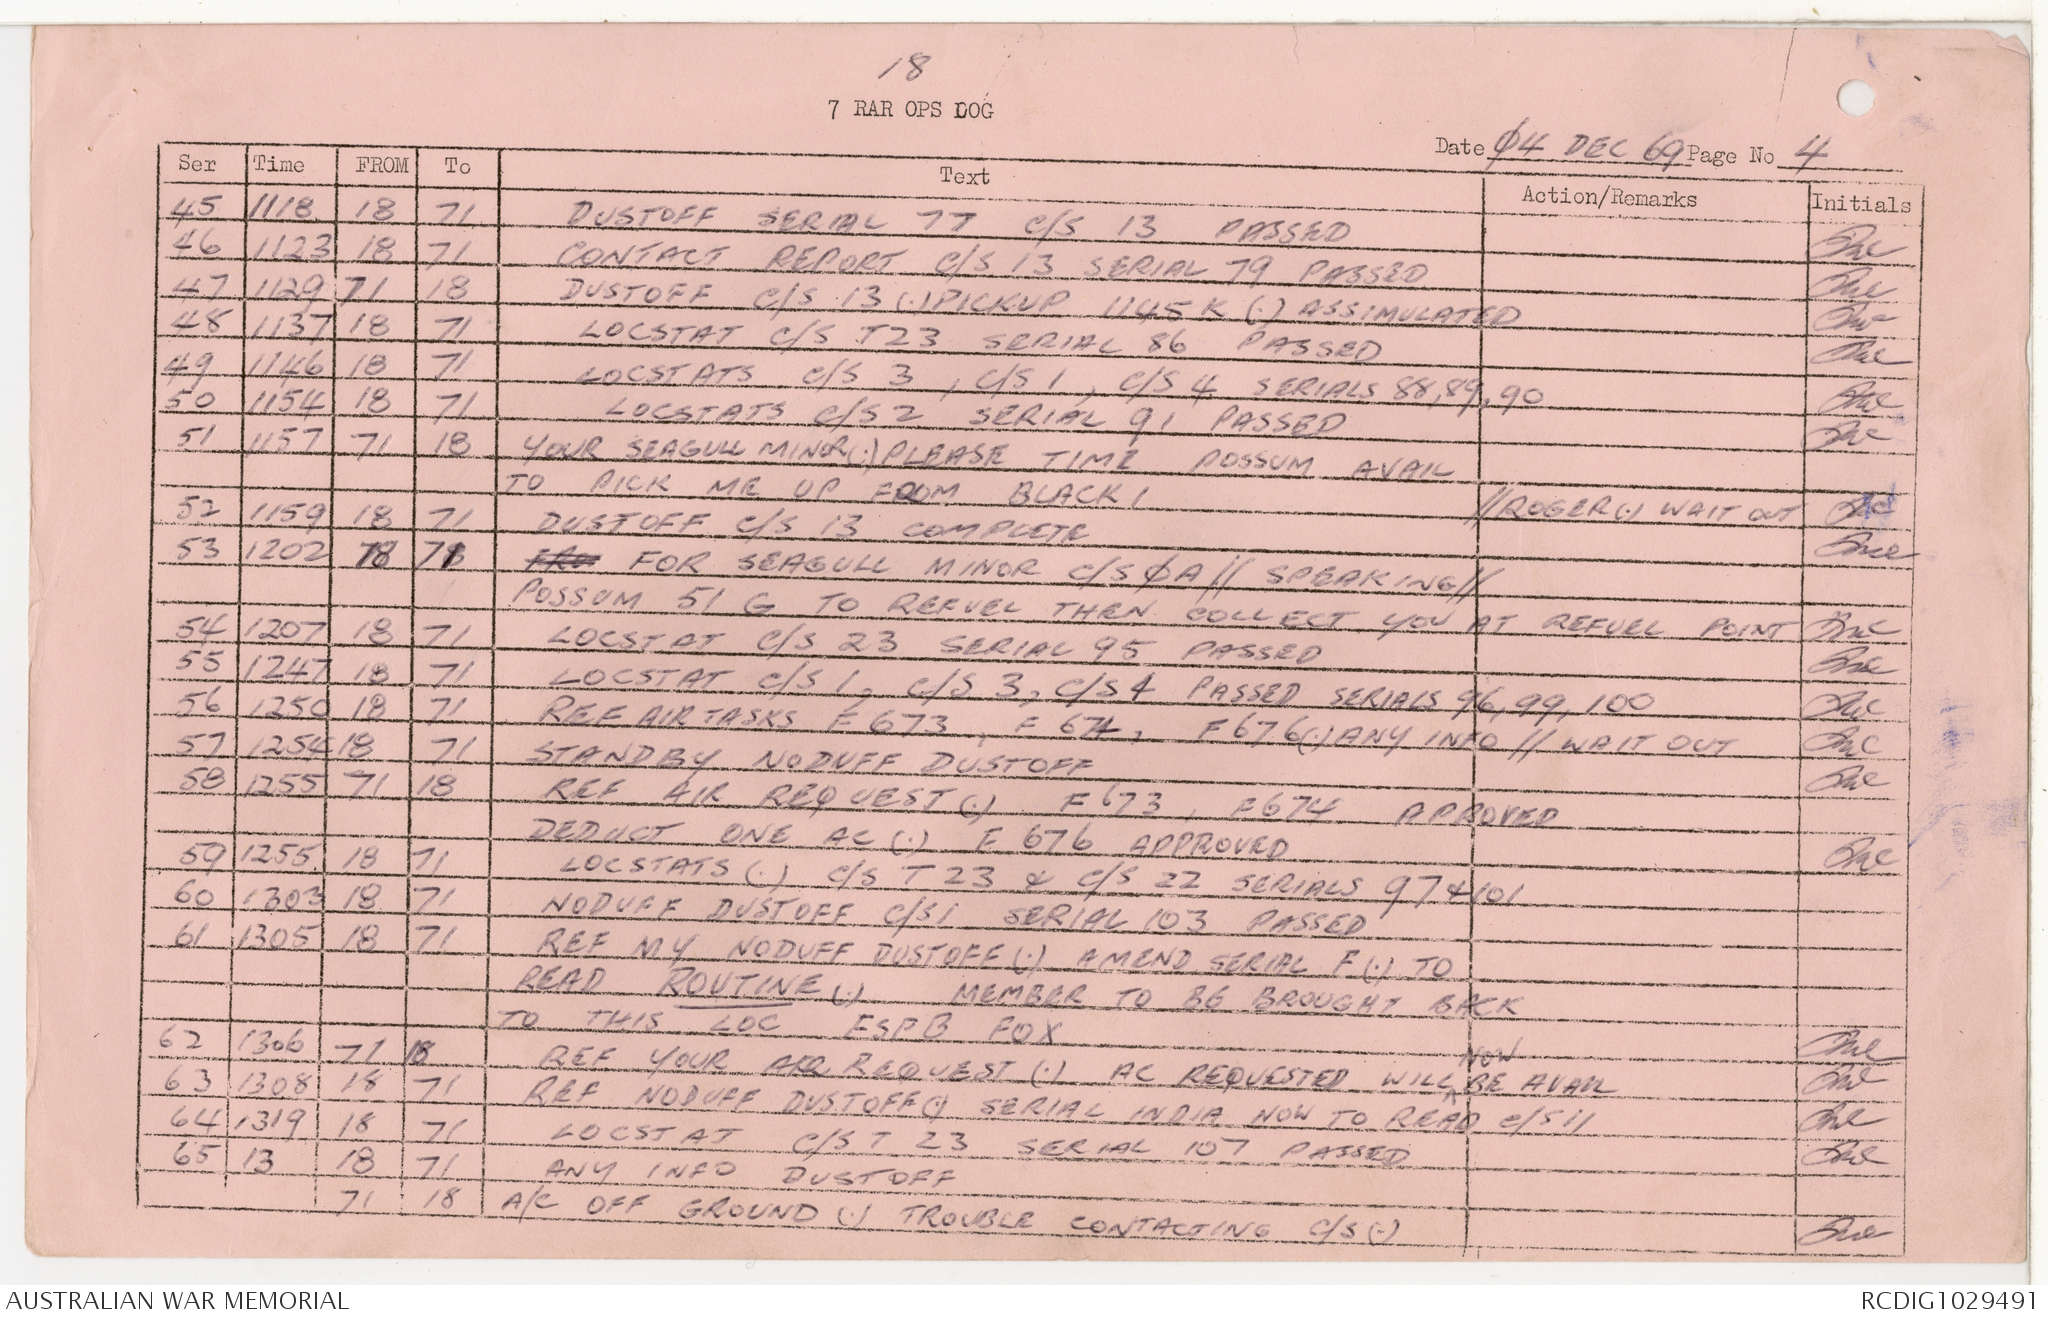 18
7 RAR OPS LOG
Date Ø4 DEC 69 Page No 4
Ser Time FROM To Text Action/Remarks Initials
45 1118 18 71 DUSTOFF SERIAL 77 C/S 13 PASSED
46 1123 18 71 CONTACT REPORT C/S 13 SERIAL 79 PASSED
47 1129 71 18 DUSTOFF C/S 13 (.) PICKUP 1145K (.) ASSIMULATED
48 1137 18 71 LOCSTAT C/S T23 SERIAL 86 PASSED
49 1146 18 71 LOCSTATS C/S 3, C/S 1, C/S 4 SERIALS 88,89,90
50 1154 18 71 LOCSTATS C/S 2 SERIAL 91 PASSED
51 1157 71 18 YOUR SEAGULL MINOR (.) PLEASE TIME POSSUM AVAIL
TO PICK ME UP FROM BLACK 1 // ROGER (.) WAIT OUT
52 1159 18 71 DUSTOFF C/S 13 COMPLETE
53 1202 18 71 FOR SEAGULL MINOR C/S ØA // SPEAKING //
POSSUM 51 G TO REFUEL THEN COLLECT YOU AT REFUEL POINT
54 1207 18 71 LOCSTAT C/S 23 SERIAL 95 PASSED
55 1247 18 71 LOCSTAT C/S 1, C/S 3, C/S 4 PASSED SERIALS 96, 99, 100
56 1250 18 71 REF AIR TASKS F673, F674, F676 (.) ANY INFO // WAIT OUT
57 1254 18 71 STANDBY NODUFF DUSTOFF
58 1255 71 18 REF AIR REQUEST (.) F673, F674 APPROVED
DEDUCT ONE AC (.) F676 APPROVED
59 1255 18 71 LOCSTATS (.) C/S T23 & C/S 22 SERIALS 97 & 101
60 1303 18 71 NODUFF DUSTOFF C/S 1 SERIAL 103 PASSED
61 1305 18 71 REF MY NODUFF DUSTOFF (.) AMEND SERIAL F (.) TO
READ ROUTINE (.) MEMBER TO BE BROUGHT BACK
TO THIS LOC FSPB FOX
62 1306 71 18 REF YOUR AIR REQUEST (.) AC REQUESTED WILL NOW BE AVAIL
63 1308 18 71 REF NODUFF DUSTOFF (.) SERIAL INDIA NOW TO READ C/S 11
64 1319 18 71 LOCSTAT C/S T23 SERIAL 107 PASSED
65 13 18 71 ANY INFO DUSTOFF
71 18 A/C OFF GROUND (.) TROUBLE CONTACTING C/S (.)
AUSTRALIAN WAR MEMORIAL RCDIG1029491